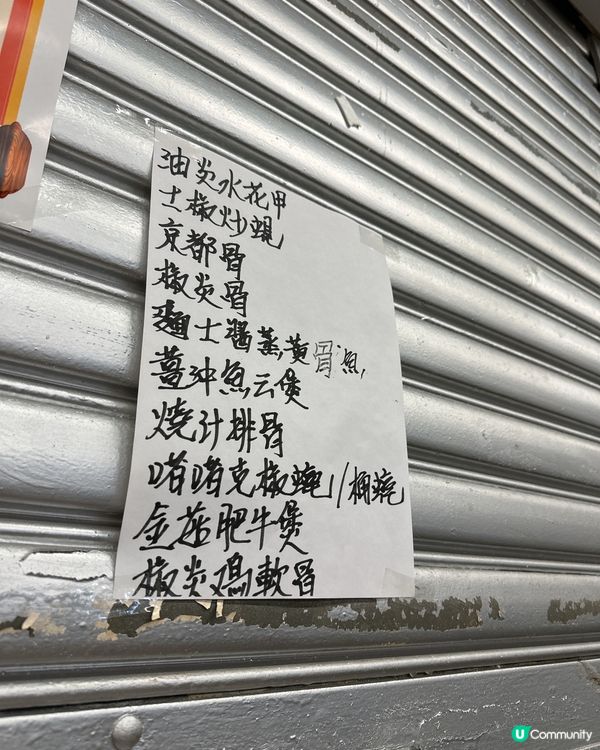 油炎水花甲
士椒炒蜆
京都骨
椒炎骨
麵士醬蒸黃骨魚
薑沖魚云煲
燒汁排骨
啫啫克椒螥/桶螥
金菇肥牛煲
椒炎鳮軟骨
U Community